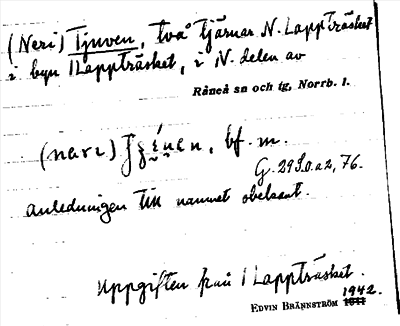 (Neri) Tjuven, två tjärnar N. Lappträsket
i byn Lappträsket, i N. delen av
Råneå sn och tg, Norrb. l.
bf. m.
G. 29
76.
anledningen till namnet obekant.
Uppgiften från Lappträsket.
EDVIN BRÄNNSTRÖM 1942.